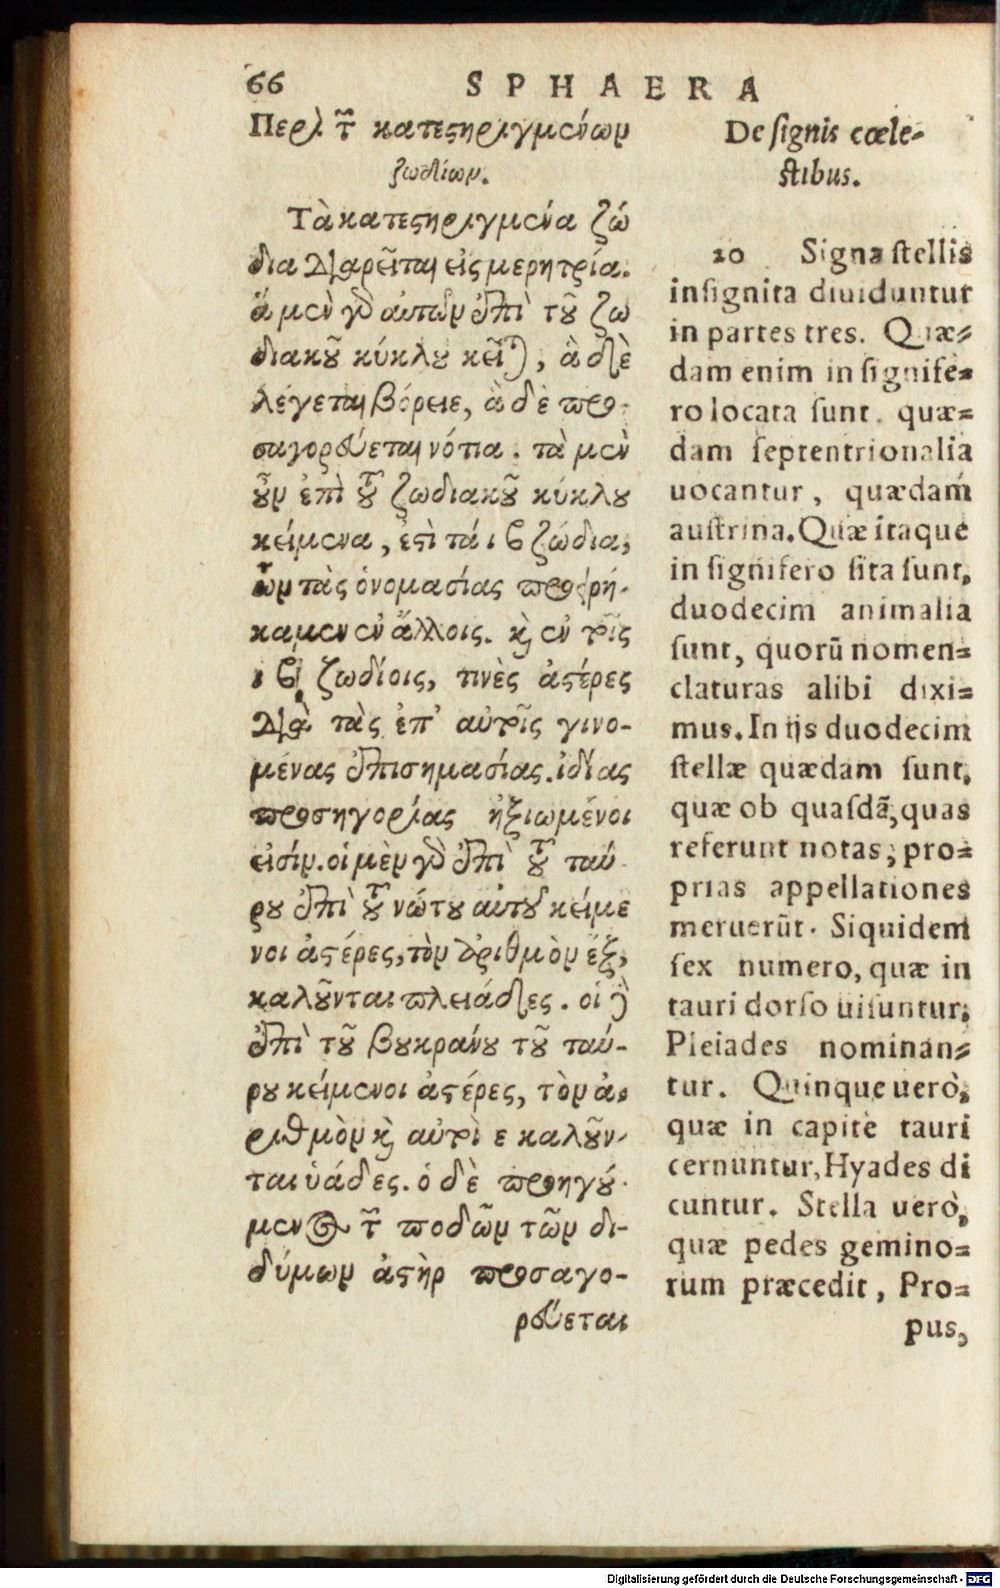 66
SPHAERA
Περὶ τῶν κατεστηριγμένων
ζωδίων.
Τὰ κατεστηριγμένα ζώ
δια διαιρεῖται εἰς μέρη τρία.
ἃ μὲν γὰρ αὐτῶν ἐπὶ τοῦ ζω
διακοῦ κύκλου κεῖται, ἃ δὲ
λέγεται βόρεια, ἃ δὲ προ-
σαγορεύεται νότια. τὰ μὲν
οὖν ἐπὶ τοῦ ζωδιακοῦ κύκλου
κείμενα, ἐστὶ τὰ ιβ ζώδια,
ὧν τὰς ὀνομασίας προειρή-
καμεν ἐν ἄλλοις. καὶ ἐν τοῖς
ιβ ζωδίοις, τινὲς ἀστέρες
διὰ τὰς ἐπ' αὐτοῖς γινο-
μένας ἐπισημασίας. ἰδίας
προσηγορίας ἠξιωμένοι
εἰσίν. οἱ μὲν γὰρ ἐπὶ τοῦ ταύ
ρου ἐπὶ τοῦ νώτου αὐτοῦ κείμε
νοι ἀστέρες, τὸν ἀριθμὸν ἕξ,
καλοῦνται πλειάδες. οἱ δὲ
ἐπὶ τοῦ βουκράνου τοῦ ταύ-
ρου κείμενοι ἀστέρες, τὸν ἀ-
ριθμὸν καὶ αὐτοὶ ε καλοῦν-
ται ὑάδες. ὁ δὲ προηγού-
μενος τῶν ποδῶν τῶν δι-
δύμων ἀστὴρ προσαγο-
ρεύεται
De signis cœle-
stibus.
20 Signa stellis
insignita diuiduntur
in partes tres. Quæ-
dam enim in signife-
ro locata sunt, quæ-
dam septentrionalia
uocantur, quædam
austrina. Quæ itaque
in signifero sita sunt,
duodecim animalia
sunt, quorū nomen-
claturas alibi dixi-
mus. In ijs duodecim
stellæ quædam sunt,
quæ ob quasdā, quas
referunt notas, pro-
prias appellationes
meruerūt. Siquidem
sex numero, quæ in
tauri dorso uisuntur,
Pleiades nominan-
tur. Quinque uerò,
quæ in capite tauri
cernuntur, Hyades di
cuntur. Stella uerò,
quæ pedes gemino-
rum præcedit, Pro-
pus,
Digitalisierung gefördert durch die Deutsche Forschungsgemeinschaft - DFG